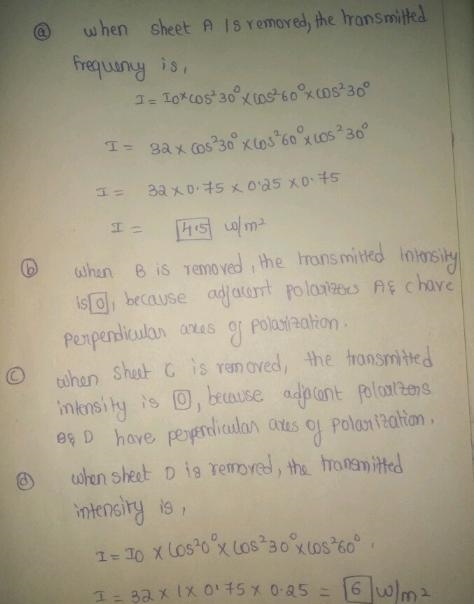 (a) when sheet A is removed, the transmitted
frequency is,
I = I0×cos²30°×cos²60°×cos²30°
I = 32 × cos²30° × cos²60° × cos²30°
I = 32 × 0.75 × 0.25 × 0.75
I = 4.5 w/m²
(b) when B is removed, the transmitted intensity
is 0, because adjacent polarizers A & C have
perpendicular axes of polarization.
(c) when sheet C is removed, the transmitted
intensity is 0, because adjacent polarizers
B & D have perpendicular axes of polarization.
(d) when sheet D is removed, the transmitted
intensity is,
I = I0 × cos²0° × cos²30° × cos²60°.
I = 32 × 1 × 0.75 × 0.25 = 6 w/m²